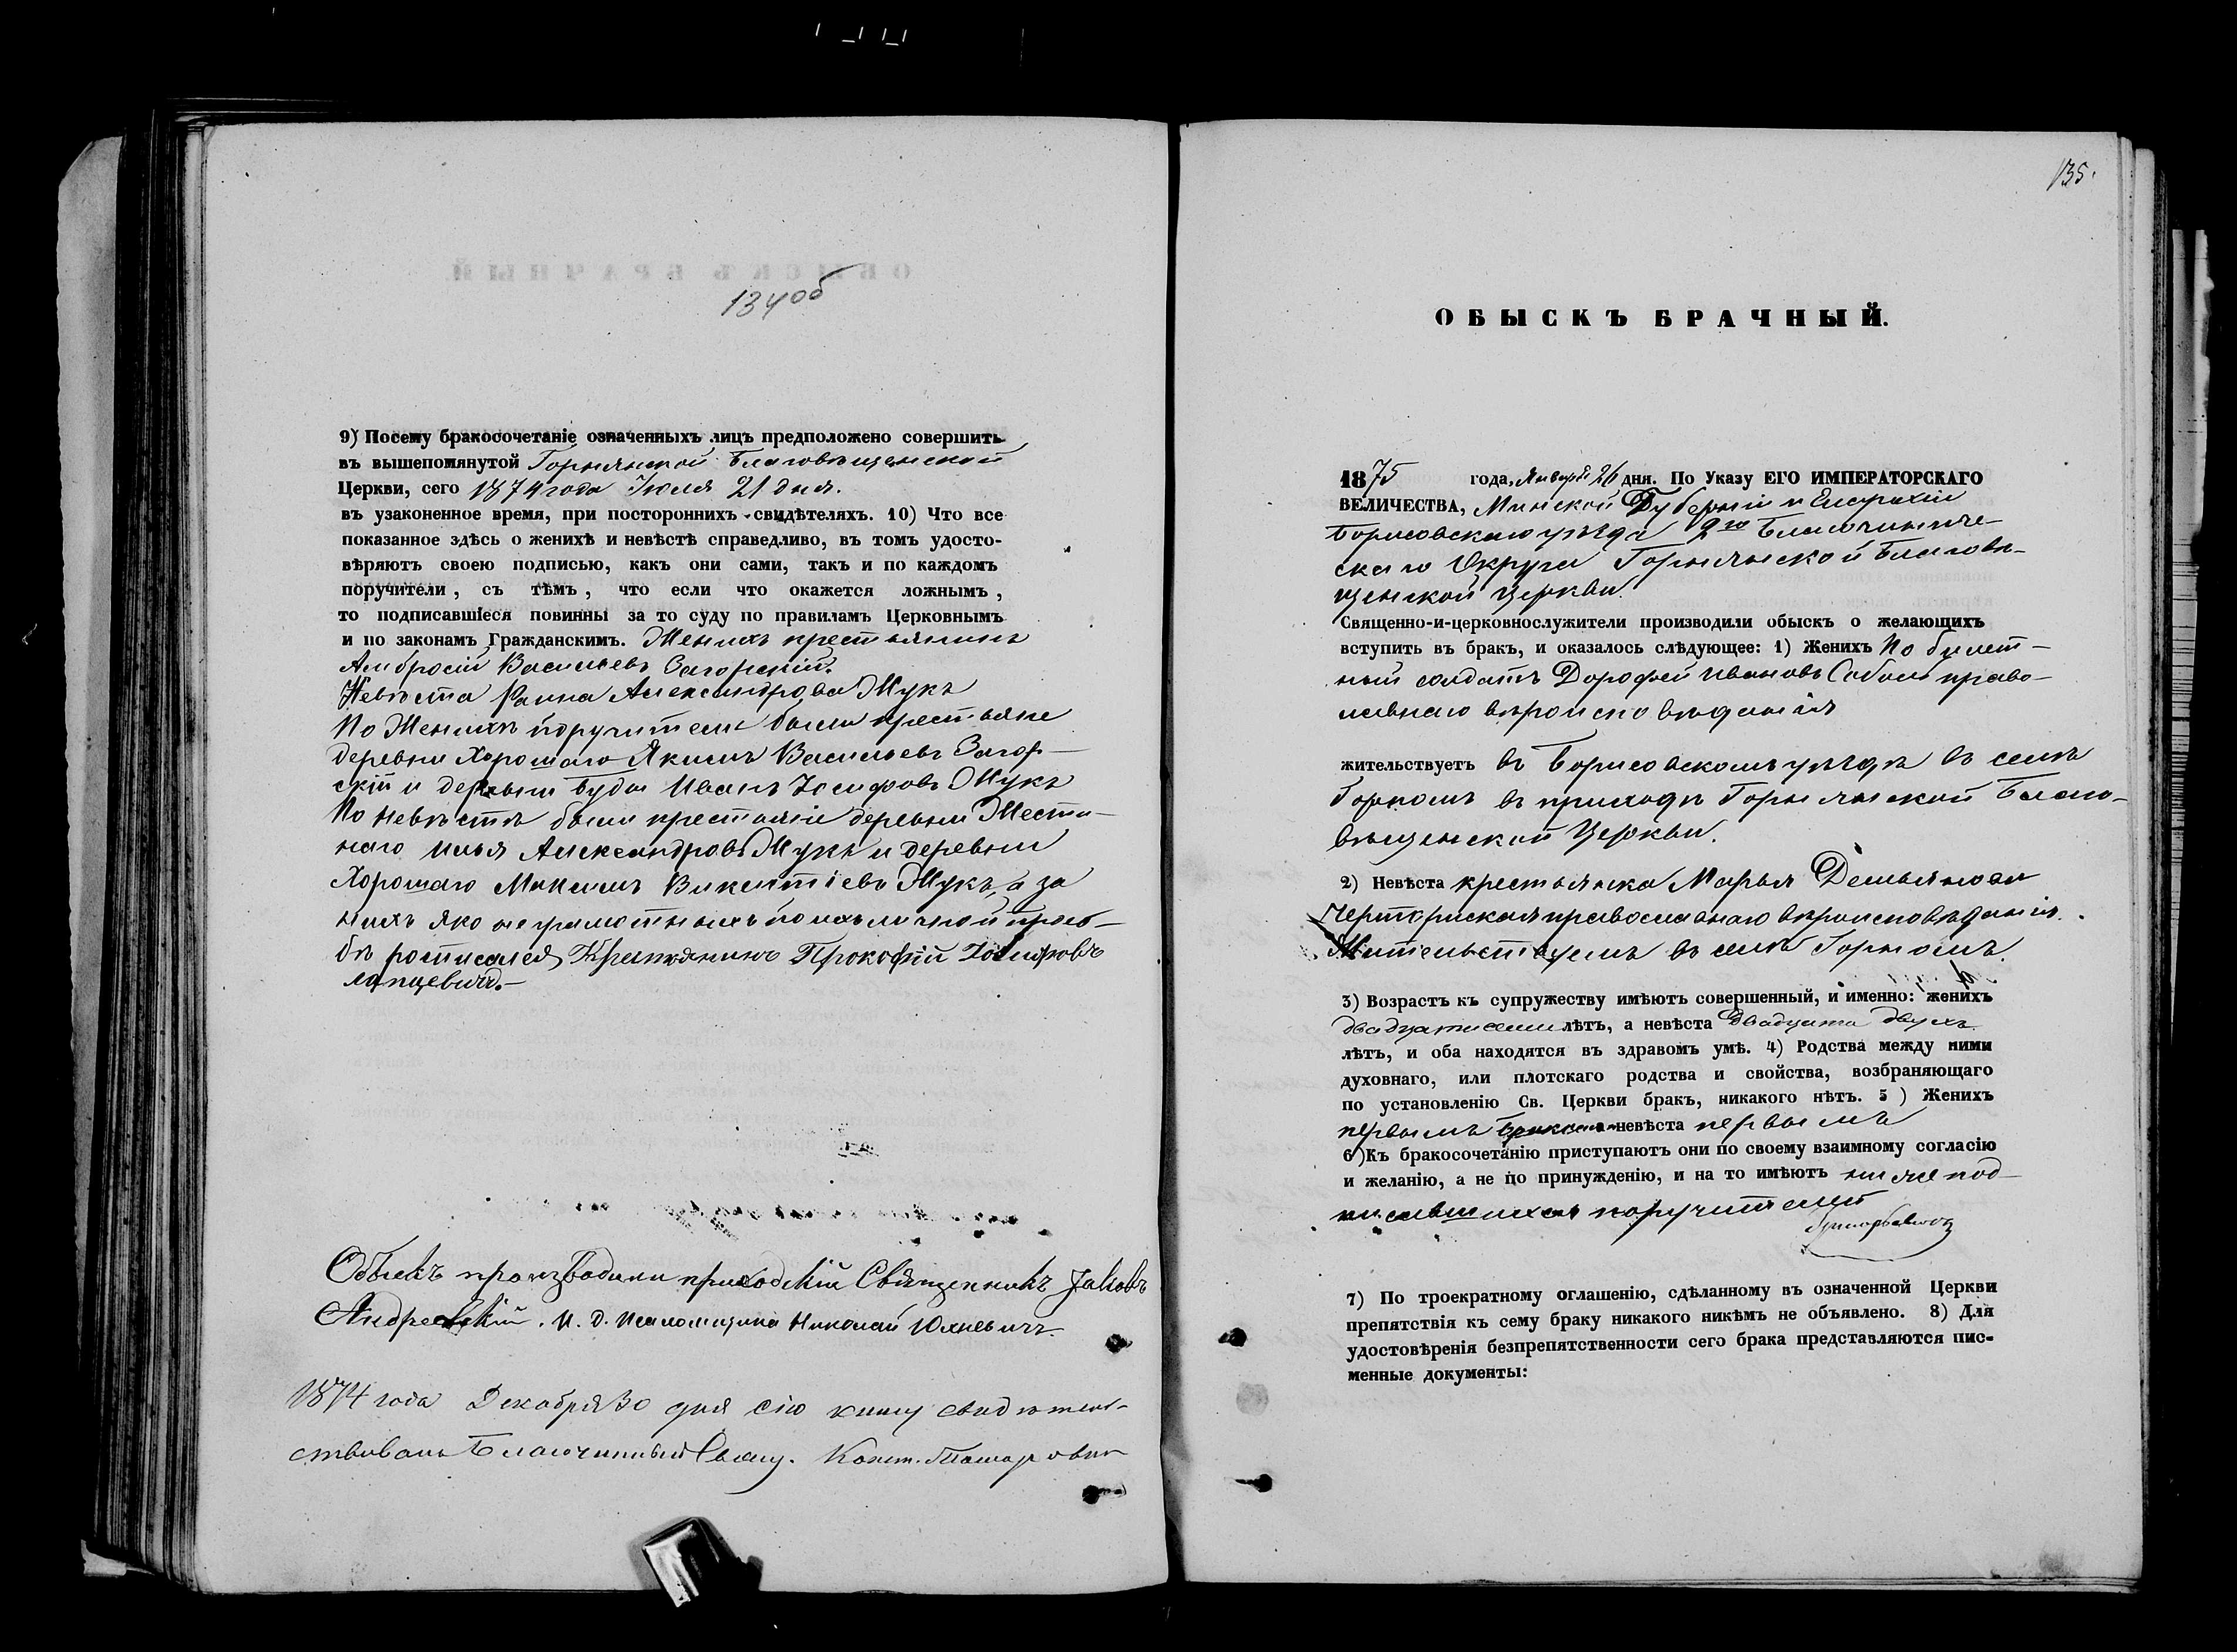 134об
9) Посему бракосочетаніе означенныхъ лицъ предположено совершить
въ вышепомянутой Горнянской Благовѣщенской
Церкви, сего 1874 года Іюля 21 дня.
въ узаконенное время, при постороннихъ свидѣтеляхъ. 10) Что все
показанное здѣсь о женихѣ и невѣстѣ справедливо, въ томъ удосто-
вѣряютъ своею подписью, какъ они сами, такъ и по каждомъ
поручители, съ тѣмъ, что если что окажется ложнымъ,
то подписавшіеся повинны за то суду по правиламъ Церковнымъ
и по законамъ Гражданскимъ. Женихъ крестьянинъ
Амбросій Васильевъ Загорскій.
Невѣста Александрова Жукъ
По Женихѣ поручители были крестьяне
деревни Хорошаго Якимъ Васильевъ Загор-
скій и деревни Буды Иванъ Іосифовъ Жукъ
По невѣстѣ были крестьяне деревни Мести-
наго Илья Александровъ Жукъ и деревни
Хорошаго Максимъ Викентіевъ Жукъ, а за
нихъ яко неграмотныхъ по ихъ личной прось-
бѣ росписался Крестьянинъ Прокофій Іосифовъ
Лапцевичъ.-
Обыскъ производили приходскій Священникъ Іаковъ
Андреевскій. И. д. Псаломщика Николай Юхневичъ.
1874 года Декабря 30 дня сію книгу свидѣтель-
ствовалъ Благочинный Свящ. Конст.
135.
ОБЫСКЪ БРАЧНЫЙ.
1875 года, Января 26 дня. По Указу ЕГО ИМПЕРАТОРСКАГО
ВЕЛИЧЕСТВА, Минской Губерніи и Епархіи
Борисовскаго уѣзда 2го Благочинниче-
скаго Округа Горнянской Благовѣ-
щенской Церкви.
Священно-и-церковнослужители производили обыскъ о желающихъ
вступить въ бракъ, и оказалось слѣдующее: 1) Женихъ По билет-
ный солдатъ Дорофей Ивановъ Соболь право-
славнаго вѣроисповѣданія
жительствуетъ въ Борисовскомъ уѣздѣ въ селѣ
Горномъ въ приходѣ Горнянской Благо-
вѣщенской Церкви.
2) Невѣста крестьянка Марья Демьянова
Черториская православнаго вѣроисповѣданія.
Жительствуетъ въ селѣ Горномъ.
3) Возрастъ къ супружеству имѣютъ совершенный, и именно: женихъ
двадцати семи лѣтъ, а невѣста двадцати двухъ
лѣтъ, и оба находятся въ здравомъ умѣ. 4) Родства между ними
духовнаго, или плотскаго родства и свойства, возбраняющаго
по установленію Св. Церкви бракъ, никакого нѣтъ. 5) Женихъ
первымъ бракомъ невѣста первымъ
6)Къ бракосочетанію приступаютъ они по своему взаимному согласію
и желанію, а не по принужденію, и на то имѣютъ ниже под-
писавшихся поручителей
7) По троекратному оглашенію, сдѣланному въ означенной Церкви
препятствія къ сему браку никакого никѣмъ не объявлено. 8) Для
удостовѣренія безпрепятственности сего брака представляются пис-
менные документы: